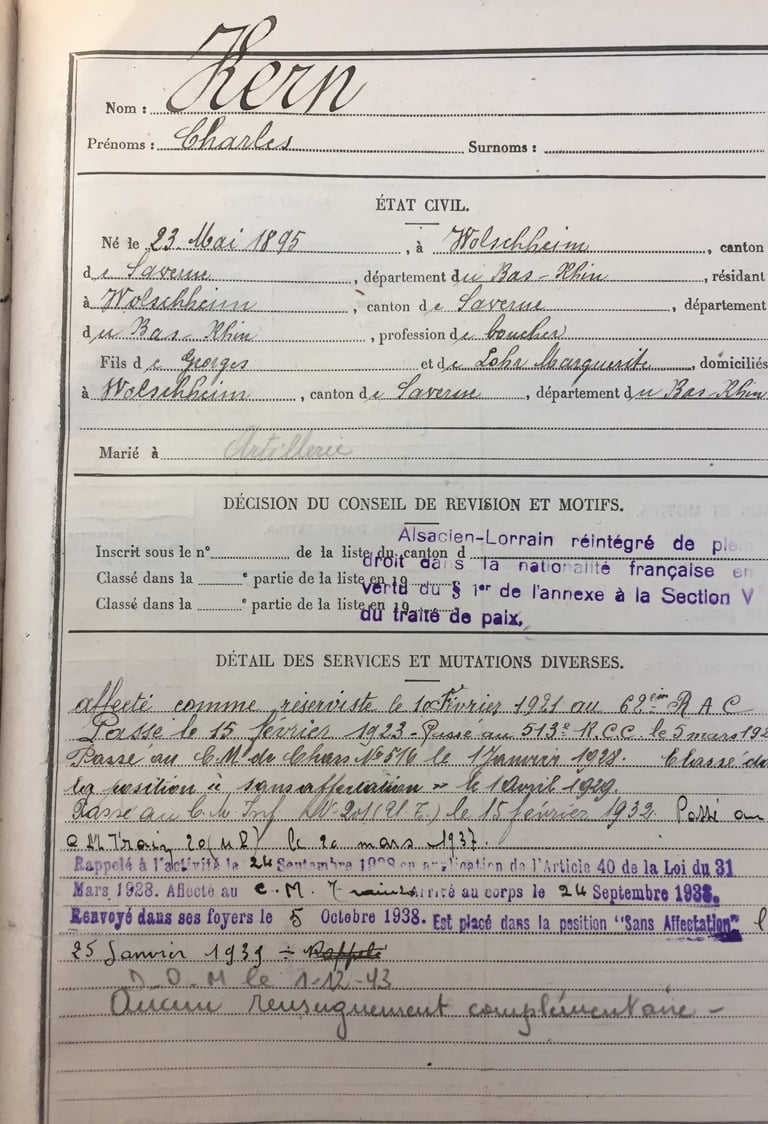 Nom : Kern
Prénoms : Charles Surnoms :
ÉTAT CIVIL.
Né le 23 Mai 1895, à Wolschheim, canton
de Saverne, département du Bas-Rhin, résidant
à Wolschheim, canton de Saverne, département
du Bas-Rhin, profession de boucher
Fils de Georges et de Lohr Marguerite, domiciliés
à Wolschheim, canton de Saverne, département du Bas-Rhin
Marié à Artillerie
DÉCISION DU CONSEIL DE REVISION ET MOTIFS.
Alsacien-Lorrain réintégré de
Inscrit sous le n° de la liste du canton d
droit dans la nationalité française en
Classé dans la e partie de la liste en 19
vertu du § 1er de l'annexe à la Section V
Classé dans la e partie de la liste en 19
du traité de paix.
DÉTAIL DES SERVICES ET MUTATIONS DIVERSES.
affecté comme réserviste le Février 1921 au 62ème R A C
Passé le 15 février 1923 - Passé au 513e R.C.C. le 5 mars
Passé au C.M. de Chars No 516 le 1 Janvier 1928. Classé
la position " sans affectation " le 1 Avril 1929.
Passé au C.M. Inf No 201 le 15 février 1932. Passé au
C M Train 20 le 20 mars 1937.
Rappelé à l'activité le 24 Septembre 1938 en application de l'Article 40 de la Loi du 31
Mars 1928. Affecté au C. M. Train arrivé au corps le 24 Septembre 1938.
Renvoyé dans ses foyers le 5 Octobre 1938. Est placé dans la position "Sans Affectation" l
25 Janvier 1939 ÷ Rappelé
D.O.M le 1-12-43
Aucun renseignement complémentaire -